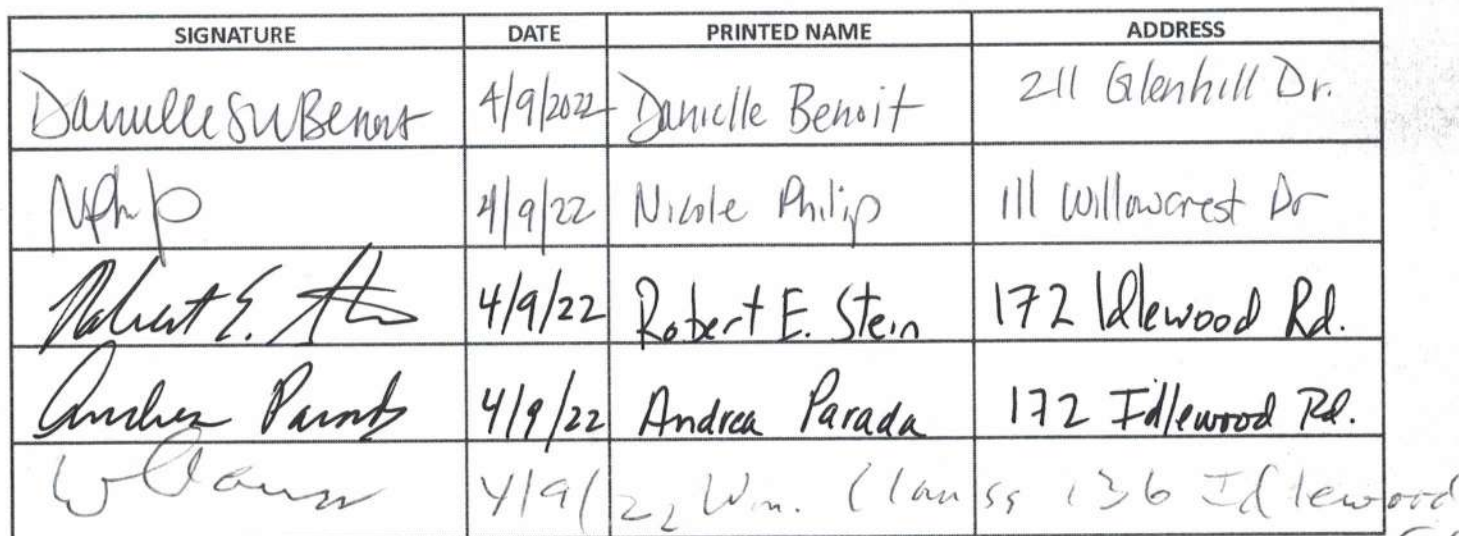 SIGNATURE DATE PRINTED NAME ADDRESS
Danielle SW Benoit 4/9/2022 Danielle Benoit 211 Glenhill Dr.
NPhip 4/9/22 Nicole Philip 111 Willowcrest Dr
Robert E. 4/9/22 Robert E. Stein 172 Idlewood Rd.
Andrea Parada 4/9/22 Andrea Parada 172 Idlewood Rd.
4/9/22 Wm. Clauss 136 Idlewood